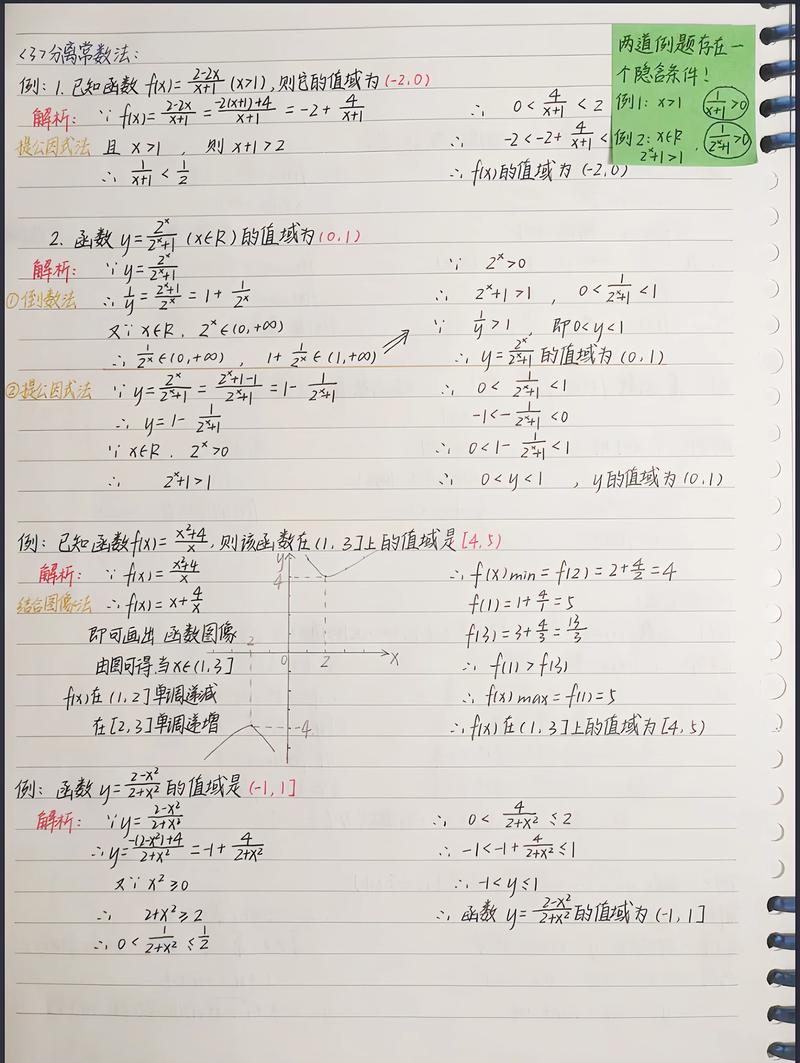 <3>分离常数法:
例: 1. 已知函数 f(x)= (2-2x)/(x+1) (x>1), 则它的值域为(-2,0)
解析: ∵ f(x)= (2-2x)/(x+1) = (-2(x+1)+4)/(x+1) = -2+ 4/(x+1)
提公因式法 且 x>1 , 则 x+1>2
∴ 1/(x+1) < 1/2
∴ 0< 4/(x+1) <2
∴ -2<-2+ 4/(x+1) <
∴ f(x)的值域为 (-2,0)
两道例题存在一
个隐含条件!
例1: x>1 1/(x+1)>0
例2: x∈R
2^x+1>1 , 1/(2^x+1)>0
2. 函数 y= 2^x/(2^x+1) (x∈R) 的值域为(0,1)
解析: ∵ y= 2^x/(2^x+1)
①倒数法 ∴ 1/y = (2^x+1)/2^x = 1+ 1/2^x
又∵ x∈R, 2^x∈(0,+∞)
∴ 1/2^x ∈(0,+∞) , 1+ 1/2^x ∈(1,+∞)
∵ 2^x>0
∴ 2^x+1>1 , 0< 1/(2^x+1) <1
∵ 1/y >1 , 即0<y<1
∴ y= 2^x/(2^x+1) 的值域为 (0,1)
②提公因式法 ∵ y= 2^x/(2^x+1) = (2^x+1-1)/(2^x+1) = 1- 1/(2^x+1)
∴ y=1- 1/(2^x+1)
∵ x∈R, 2^x>0
∴ 2^x+1>1
∴ 0< 1/(2^x+1) <1
-1<- 1/(2^x+1) <0
∴ 0<1- 1/(2^x+1) <1
∴ 0<y<1 , y的值域为(0,1)
例: 已知函数f(x)= (x²+4)/x, 则该函数在(1,3]上的值域是[4,5)
解析: ∵ f(x)= (x²+4)/x
结合图像法 ∴ f(x)=x+ 4/x
即可画出 函数图像
由图可得,当x∈(1,3]
f(x)在(1,2]单调递减
在[2,3]单调递增
y
4
2
0 2 x
-4
∴ f(x)min=f(2)=2+ 4/2 =4
f(1)=1+ 4/1 =5
f(3)=3+ 4/3 = 13/3
∴ f(1)>f(3)
∴ f(x)max=f(1)=5
∴ f(x)在(1,3]上的值域为[4,5)
例: 函数 y= (2-x²)/(2+x²) 的值域是(-1,1]
解析: ∵ y= (2-x²)/(2+x²)
∴ y= (-(2-x²)+4)/(2+x²) = -1+ 4/(2+x²)
又∵ x²≥0
∴ 2+x²≥2
∴ 0< 1/(2+x²) ≤ 1/2
∴ 0< 4/(2+x²) ≤2
∴ -1<-1+ 4/(2+x²) ≤1
∴ -1<y≤1
∴ 函数 y= (2-x²)/(2+x²) 的值域为(-1,1]